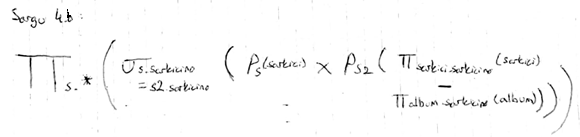 Sorgu 4.b:
π s.* ( σ s.sarkicino = s2.sarkicino ( ρ s (sarkici) × ρ s2 ( π sarkici.sarkicino (sarkici) − π album.sarkicino (album) ) ) )